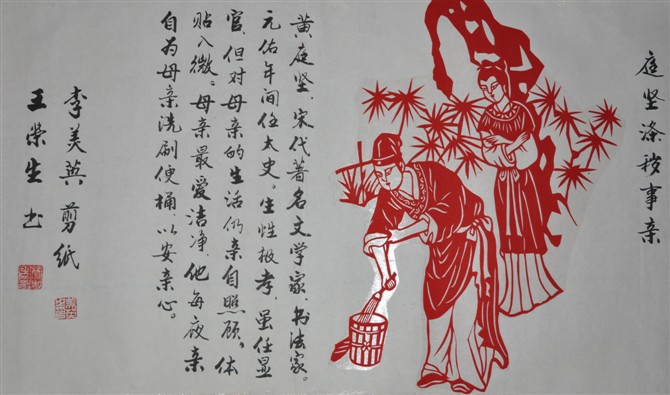 庭坚涤秽事亲
黄庭坚，宋代著名文学家、书法家。
元佑年间任太史。生性极孝，虽任显
官，但对母亲的生活仍亲自照顾，体
贴入微。母亲最爱洁净，他每夜亲
自为母亲洗刷便桶，以安亲心。
李美英 剪纸
王荣生 书